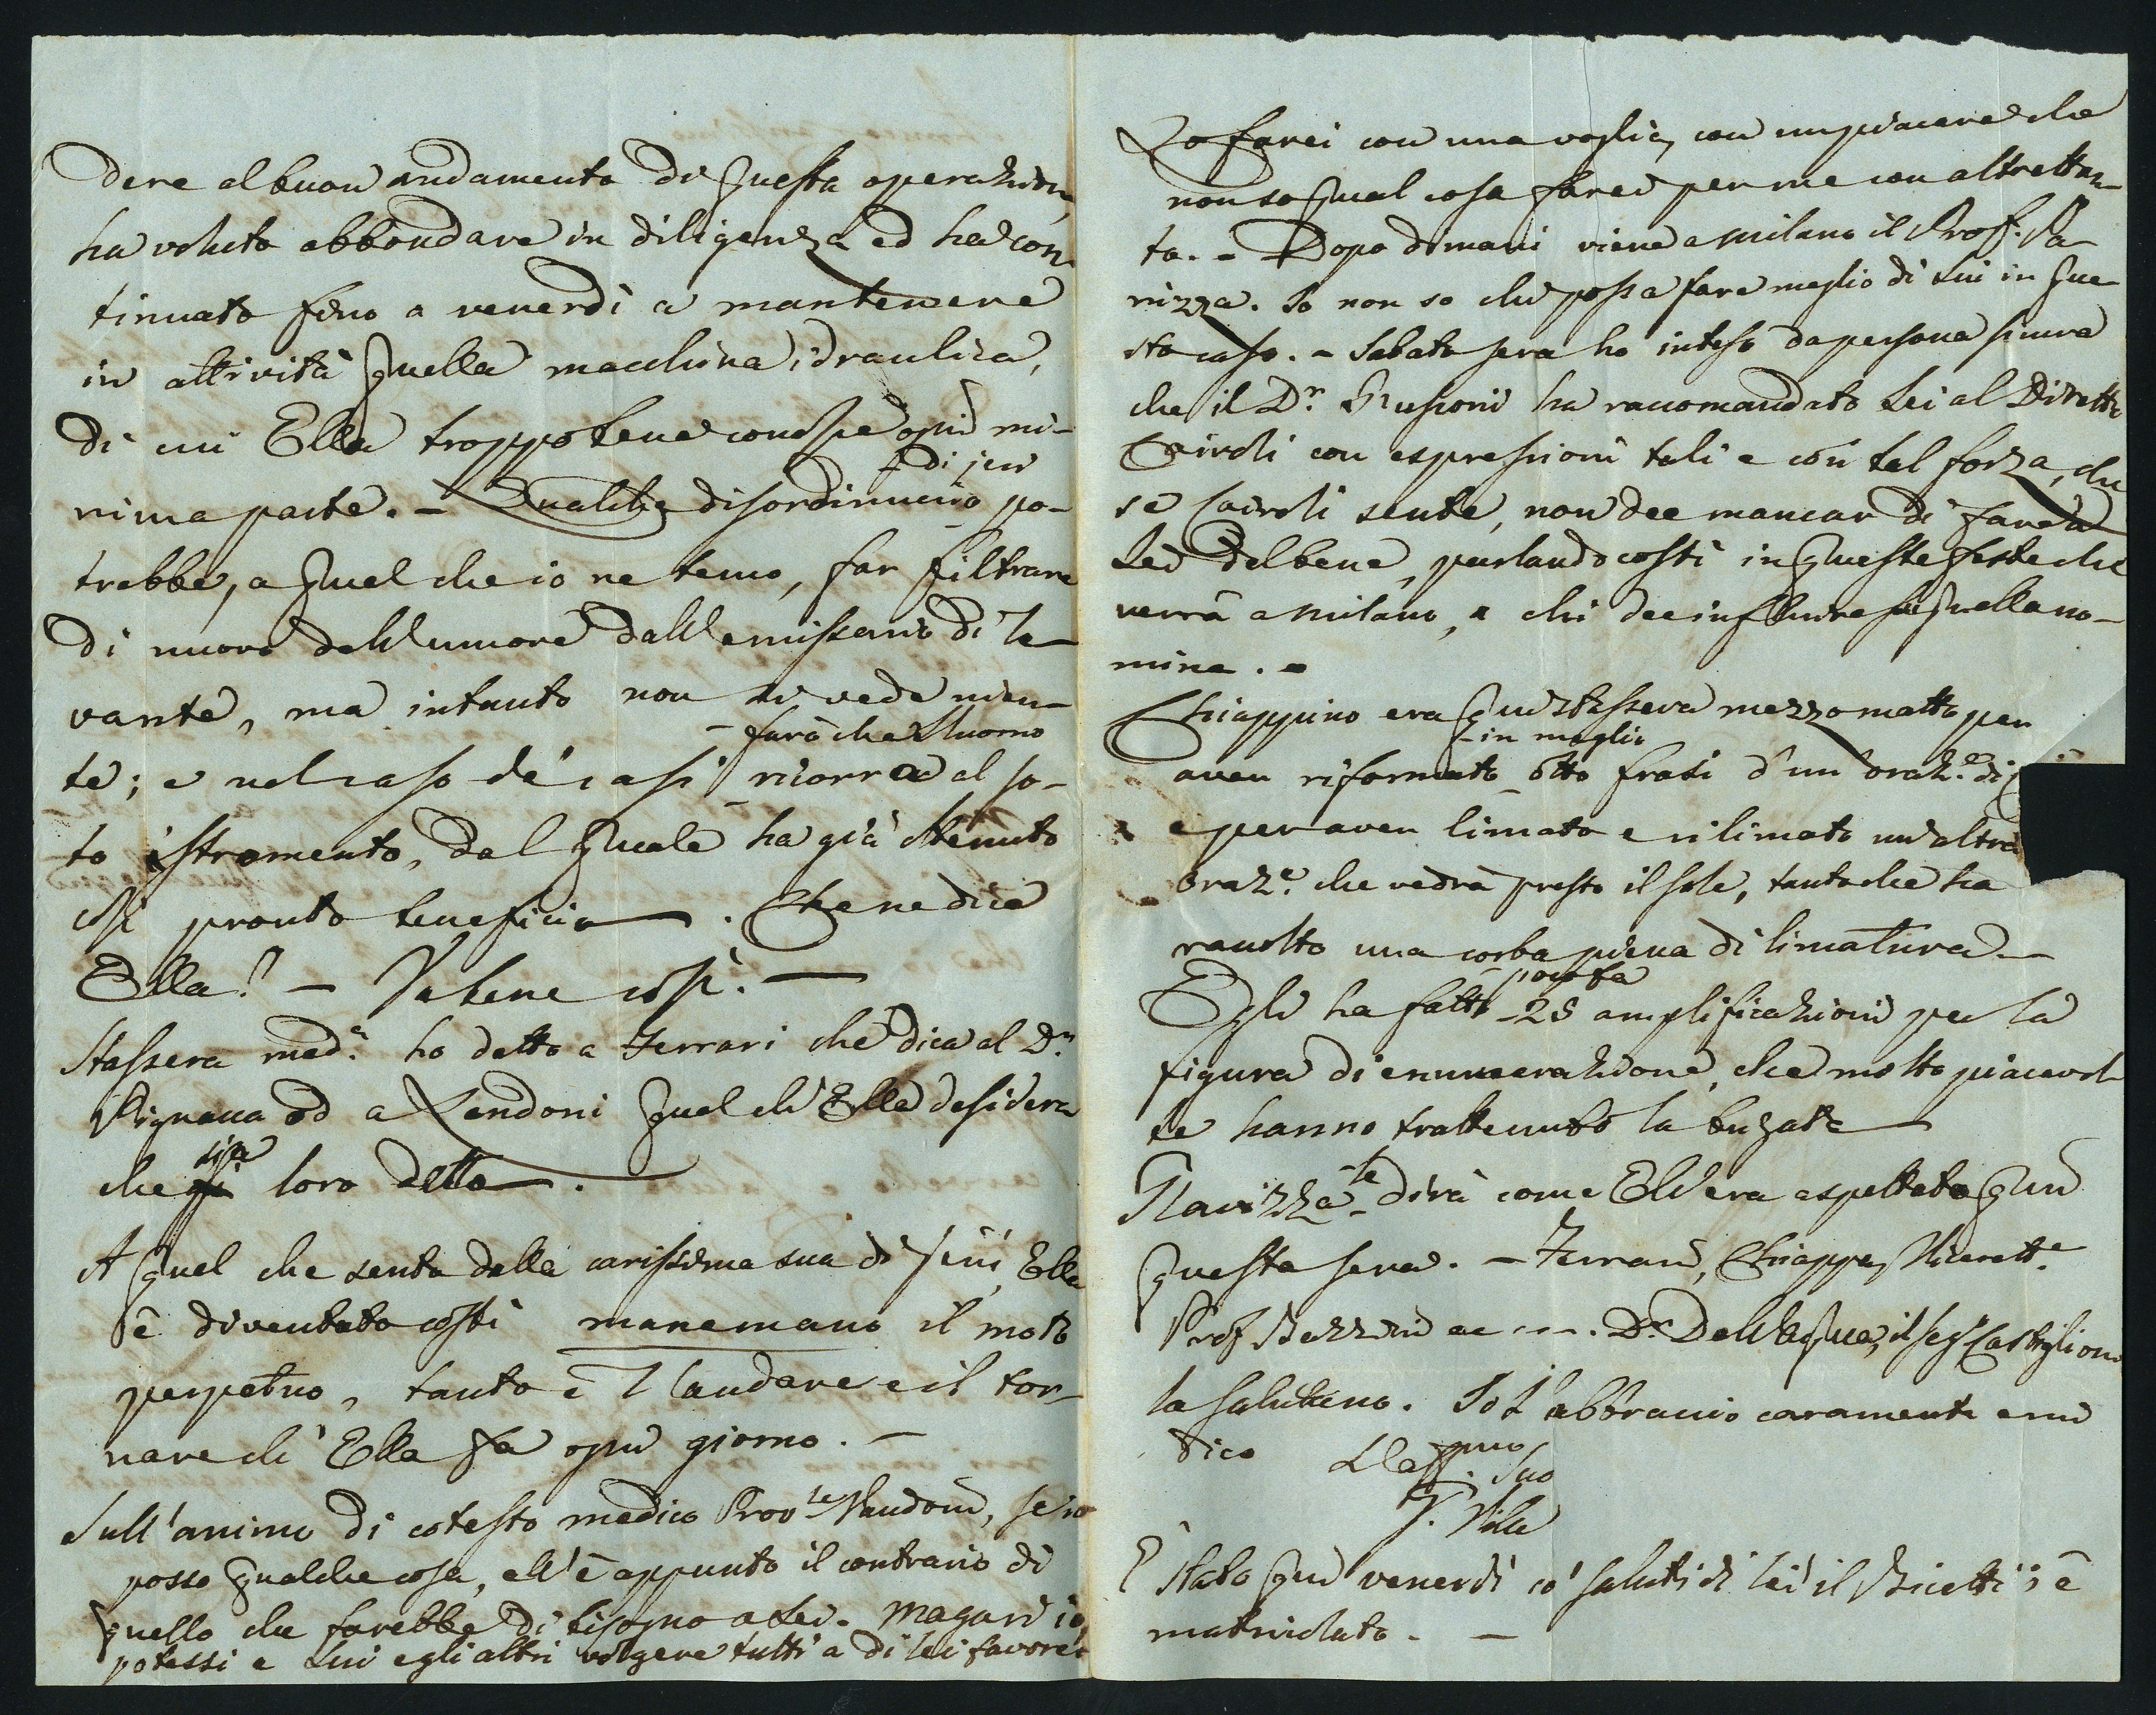 dere al buon andamento di questa operazione,
ha voluto abbondare in diligenza ed ha con-
tinuato fino a venerdì a mantenere
in attività quella macchina idraulica,
di cui Ella troppo bene conosce ogni mi-
nima parte. - Qualche disordinuccio di jeri po-
trebbe, a quel che io ne temo, far filtrare
di nuovo dell'umore dall'emissario di le-
vante, ma intanto non si vede nien-
te; e nel caso de' casi farà che l'uomo ricorra al so-
to istromento, dal quale ha già ottenuto
così pronto beneficio. Che ne dice
Ella? - Va bene così. -
Stassera med.ª ho detto a Ferrari che dica al D.r
Vignacca od a Zendoni quel ch'Ella desidera
che sia loro detto.
A quel che sento dalla carissima sua di jeri, Ella
è diventato costì manemano il moto
perpetuo, tanto è l'andare e il tor-
nare ch'Ella fa ogni giorno. -
Sull'animo di cotesto medico Prov.le Nandoni, se io
posso qualche cosa, ell'è appunto il contrario di
quello che farebbe di bisogno a Lei. Magari io
potessi e Lui e gli altri volgere tutti a di lei favore.
Lo farei con una voglia, con un piacere che
non so qual cosa farei per me con altrettan-
to. - Dopo dimani viene a Milano il Prof. Pa-
nizza. Io non so chi possa fare meglio di Lui in que-
sto caso. - Sabato sera ho inteso da persona sicura
che il D.r Grussoni ha raccomandato Lei al Dirett.e
Cairoli con espressioni tali e con tal forza, che
se Cairoli sente, non dee mancar di fare a
Lei del bene, parlando costì in queste feste che
verrà a Milano, a chi dee influire su quella no-
mina. -
Chiappino era qui stassera mezzo matto per
aver riformato in meglio otto frasi d'un'oraz.e di
e per aver limato e rilimato un'altra
oraz.e che vedrà presto il sole, tanto che ha
raccolto una corba piena di limatura. -
Egli ha fatto poco fa 25 amplificazioni per la
figura di enumerazione, che molto piacevol.
te hanno trattenuto la
Clavizza le dirà come Ell'era aspettato qui
questa sera. - Ferrari, Chiappa,
Prof. Bezzini ec ---. D.r Dell'Acqua, il seg.r Castiglioni
la salutano. Io l'abbraccio caramente e mi
dico L'aff.mo Suo
V. Villa
È stato qui venerdì co' saluti di lei il Bicetti; è
matricolato. -